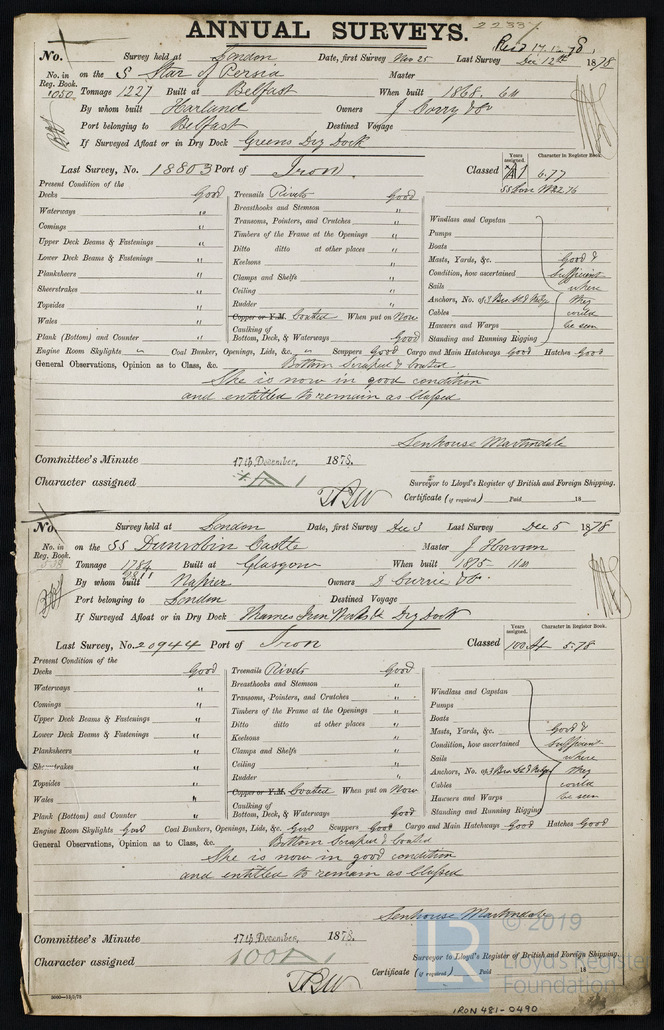 ANNUAL SURVEYS.
2237
Rec'd 17.12.78
No. Survey held at London Date, first Survey Nov 25 Last Survey Dec 12th 1878
No. in Reg. Book. 1050 on the S Star of Persia Master
Tonnage 1227 Built at Belfast When built 1868. 6M
By whom built Harland Owners J Corry & Co
Port belonging to Belfast Destined Voyage
If Surveyed Afloat or in Dry Dock Greens Dry Dock
Last Survey, No. 18803 Port of Iron. Classed Years assigned. A1 Character in Register Book. 6.77
Present Condition of the
Decks Good
Waterways "
Comings "
Upper Deck Beams & Fastenings "
Lower Deck Beams & Fastenings "
Planksheers "
Sheerstrakes "
Topsides "
Wales "
Plank (Bottom) and Counter "
Treenails Rivets Good
Breasthooks and Stemson "
Transoms, Pointers, and Crutches "
Timbers of the Frame at the Openings "
Ditto ditto at other places "
Keelsons "
Clamps and Shelfs "
Ceiling "
Rudder "
Copper or Y.M. Coated When put on Now
Caulking of
Bottom, Deck, & Waterways Good
Windlass and Capstan
Pumps
Boats
Masts, Yards, &c. Good &
Condition, how ascertained sufficient
Sails where
Anchors, No. of 3 Bow. St & Kedge they
Cables could
Hausers and Warps be seen
Standing and Running Rigging
Engine Room Skylights " Coal Bunker, Openings, Lids, &c. " Scuppers Good Cargo and Main Hatchways Good Hatches Good
General Observations, Opinion as to Class, &c. Bottom Scraped & Coated
She is now in good condition
and entitled to remain as Classed
Senhouse Martindale
Committee's Minute 17th December, 1878.
Surveyor to Lloyd's Register of British and Foreign Shipping.
Character assigned A1
Certificate (if required) Paid 18
No. Survey held at London Date, first Survey Dec 3 Last Survey Dec 5 1878
No. in Reg. Book. 538 on the SS Dunrobin Castle Master J Howson
Tonnage 1784 Built at Glasgow When built 1875 11M
By whom built Napier Owners D Currie & Co.
Port belonging to London Destined Voyage
If Surveyed Afloat or in Dry Dock Thames Iron Works Dry Dock
Last Survey, No. 20944 Port of Iron Classed Years assigned. 100 A1 Character in Register Book. 5.78
Present Condition of the
Decks Good
Waterways "
Comings "
Upper Deck Beams & Fastenings "
Lower Deck Beams & Fastenings "
Planksheers "
Sheerstrakes "
Topsides "
Wales "
Plank (Bottom) and Counter "
Treenails Rivets Good
Breasthooks and Stemson "
Transoms, Pointers, and Crutches "
Timbers of the Frame at the Openings "
Ditto ditto at other places "
Keelsons "
Clamps and Shelfs "
Ceiling "
Rudder "
Copper or Y.M. Coated When put on Now
Caulking of
Bottom, Deck, & Waterways Good
Windlass and Capstan
Pumps
Boats
Masts, Yards, &c. Good &
Condition, how ascertained sufficient
Sails where
Anchors, No. of 3 Bow. St & Kedge they
Cables could
Hausers and Warps be seen
Standing and Running Rigging
Engine Room Skylights Good Coal Bunkers, Openings, Lids, &c. Good Scuppers Good Cargo and Main Hatchways Good Hatches Good
General Observations, Opinion as to Class, &c. Bottom Scraped & Coated
She is now in good condition
and entitled to remain as Classed
Senhouse Martindale
Committee's Minute 17th December, 1878.
Surveyor to Lloyd's Register of British and Foreign Shipping.
Character assigned 100A1
Certificate (if required) Paid 18
LR © 2019
Lloyd's Register
Foundation
IRON 481-0490